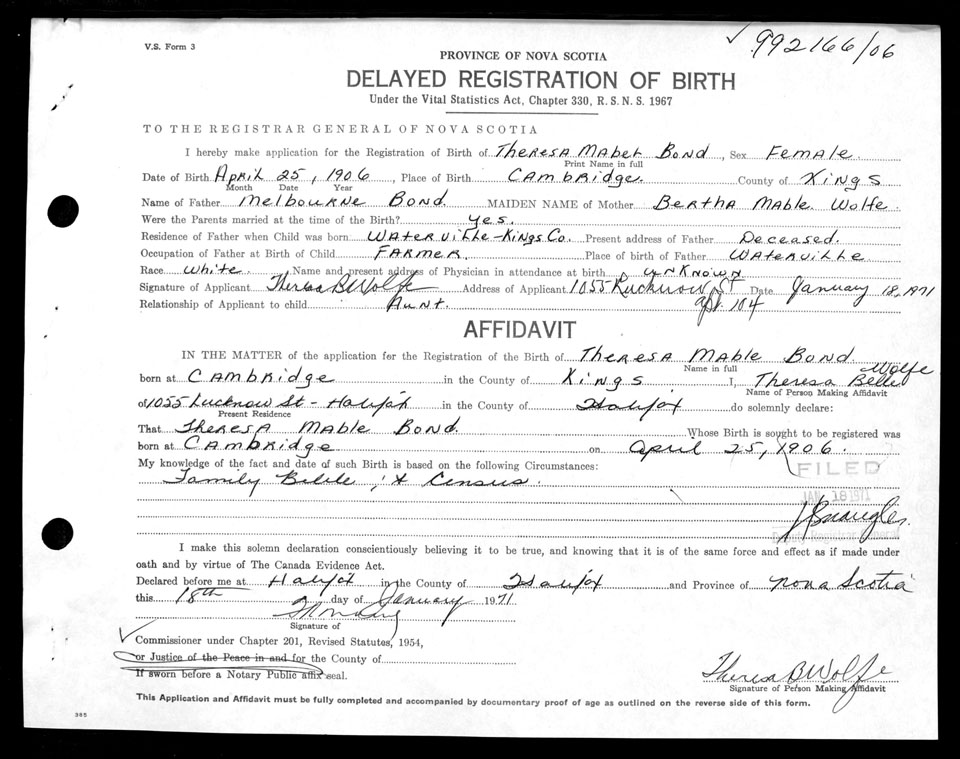 V.S. Form 3
✓ 992166/06
PROVINCE OF NOVA SCOTIA
DELAYED REGISTRATION OF BIRTH
Under the Vital Statistics Act, Chapter 330, R. S. N. S. 1967
TO THE REGISTRAR GENERAL OF NOVA SCOTIA
I hereby make application for the Registration of Birth of Theresa Mabel Bond, Sex Female.
Print Name in full
Date of Birth April 25, 1906, Place of Birth Cambridge. County of Kings
Month Date Year
Name of Father Melbourne Bond. MAIDEN NAME of Mother Bertha Mable Wolfe.
Were the Parents married at the time of the Birth? yes.
Residence of Father when Child was born Waterville-Kings Co. Present address of Father Deceased.
Occupation of Father at Birth of Child Farmer. Place of birth of Father Waterville
Race White. Name and present address of Physician in attendance at birth unknown
Signature of Applicant Theresa B Wolfe Address of Applicant 1055 Lucknow St Date January 18, 1971
Relationship of Applicant to child Aunt. apt. 104
AFFIDAVIT
IN THE MATTER of the application for the Registration of the Birth of Theresa Mable Bond
Name in full Wolfe
born at Cambridge in the County of Kings I, Theresa Belle
Name of Person Making Affidavit
of 1055 Lucknow St - Halifax in the County of Halifax do solemnly declare:
Present Residence
That Theresa Mable Bond. Whose Birth is sought to be registered was
born at Cambridge on April 25, 1906.
My knowledge of the fact and date of such Birth is based on the following Circumstances:
FILED
Family Bible, & Census.
JAN 18 1971
I make this solemn declaration conscientiously believing it to be true, and knowing that it is of the same force and effect as if made under
oath and by virtue of The Canada Evidence Act.
Declared before me at Halifax in the County of Halifax and Province of Nova Scotia
this 18th day of January 1971
Signature of
✓ Commissioner under Chapter 201, Revised Statutes, 1954,
or Justice of the Peace in and for the County of
If sworn before a Notary Public affix seal.
Theresa B Wolfe
Signature of Person Making Affidavit
This Application and Affidavit must be fully completed and accompanied by documentary proof of age as outlined on the reverse side of this form.
365